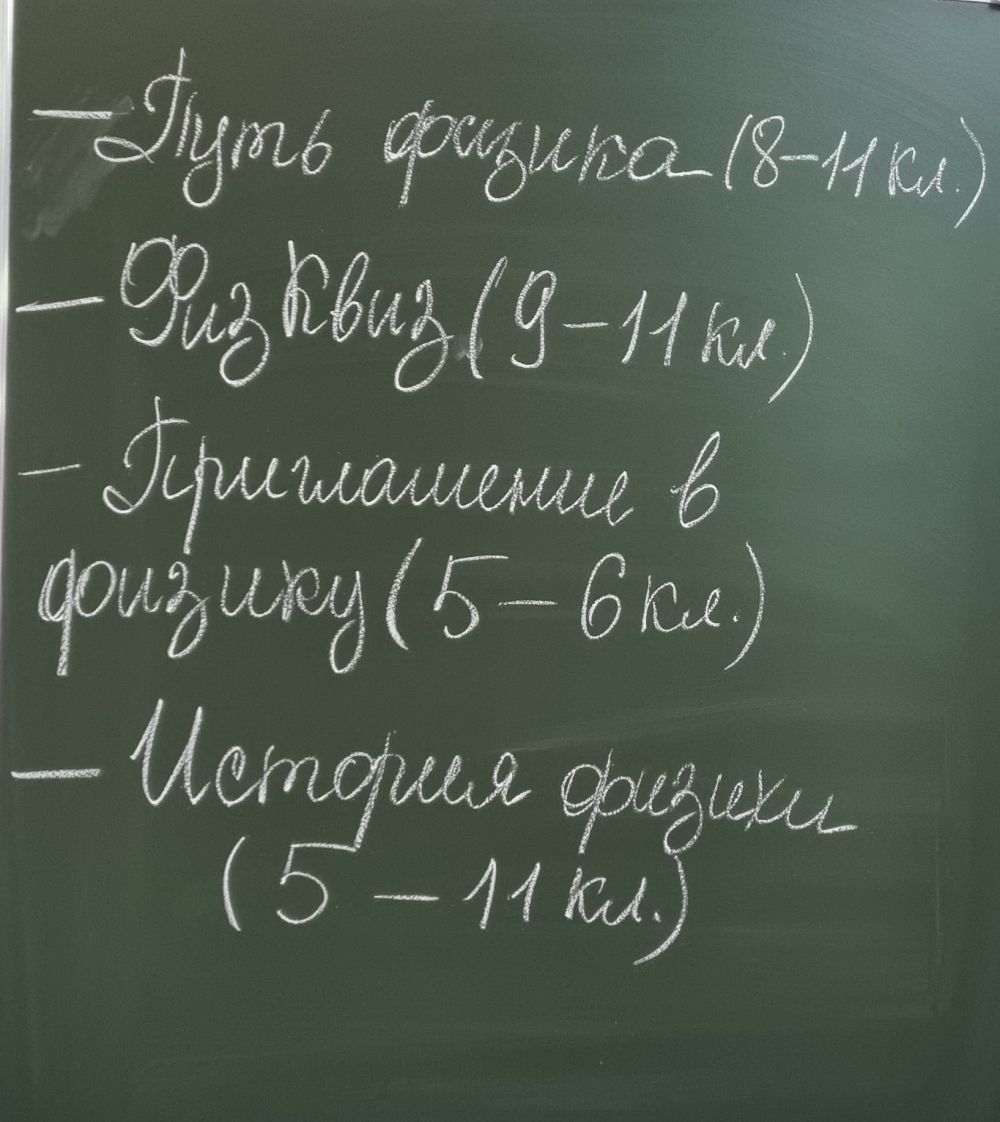 — Путь физика (8-11 кл.)
— ФизКвиз (9-11 кл.)
- Приглашение в
физику (5-6 кл.)
— История физики
(5-11 кл.)